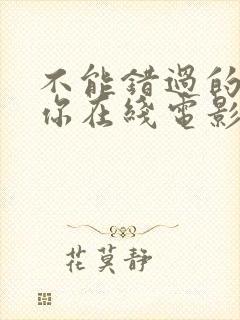 不能错过的
你在线电影
花莫静